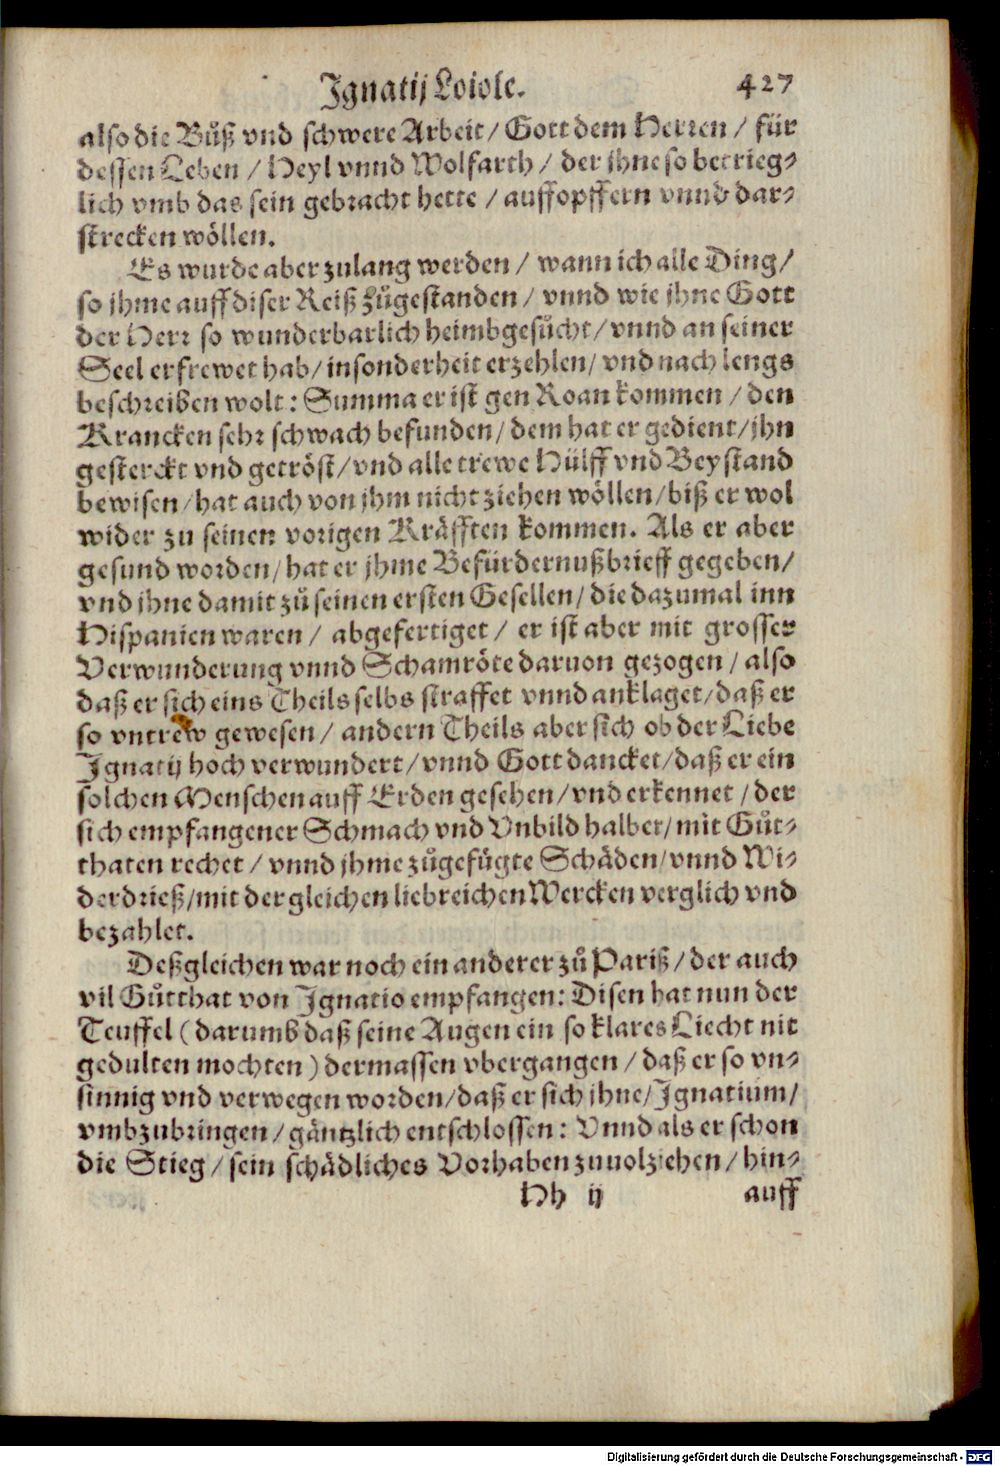 Ignatij Loiole. 427
also die Bůß vnd schwere Arbeit/ Gott dem Herren / für
dessen Leben / Heyl vnnd Wolfarth / der jhne so betrieg-
lich vmb das sein gebracht hette / auffopffern vnnd dar-
strecken wöllen.
Es wurde aber zulang werden / wann ich alle Ding/
so jhme auff diser Reiß zůgestanden / vnnd wie jhne Gott
der Herr so wunderbarlich heimbgesůcht/ vnnd an seiner
Seel erfrewet hab/ insonderheit erzehlen/ vnd nach lengs
beschreiben wolt: Summa er ist gen Roan kommen / den
Krancken sehr schwach befunden/ dem hat er gedient/ jhn
gesterckt vnd getröst/ vnd alle trewe Hülff vnd Beystand
bewisen/ hat auch von jhm nicht ziehen wöllen/ biß er wol
wider zu seinen vorigen Kräfften kommen. Als er aber
gesund worden/ hat er jhme Befürdernußbrieff gegeben/
vnd jhne damit zů seinen ersten Gesellen/ die dazumal inn
Hispanien waren / abgefertiget / er ist aber mit grosser
Verwunderung vnnd Schamröte daruon gezogen / also
daß er sich eins Theils selbs straffet vnnd anklaget/ daß er
so vntrew gewesen / andern Theils aber sich ob der Liebe
Ignatij hoch verwundert/ vnnd Gott dancket/ daß er ein
solchen Menschen auff Erden gesehen/ vnd erkennet / der
sich empfangener Schmach vnd Vnbild halber/ mit Gůt-
thaten rechet / vnnd jhme zůgefügte Schäden/ vnnd Wi-
derdrieß/ mit der gleichen liebreichen Wercken verglich vnd
bezahlet.
Deßgleichen war noch ein anderer zů Pariß / der auch
vil Gůtthat von Ignatio empfangen: Disen hat nun der
Teuffel ( darumb daß seine Augen ein so klares Liecht nit
gedulten mochten ) dermassen vbergangen / daß er so vn-
sinnig vnd verwegen worden/ daß er sich jhne/ Ignatium/
vmbzubringen / gäntzlich entschlossen: Vnnd als er schon
die Stieg / sein schädliches Vorhaben zuuolziehen / hin-
Hh ij auff
Digitalisierung gefördert durch die Deutsche Forschungsgemeinschaft - DFG